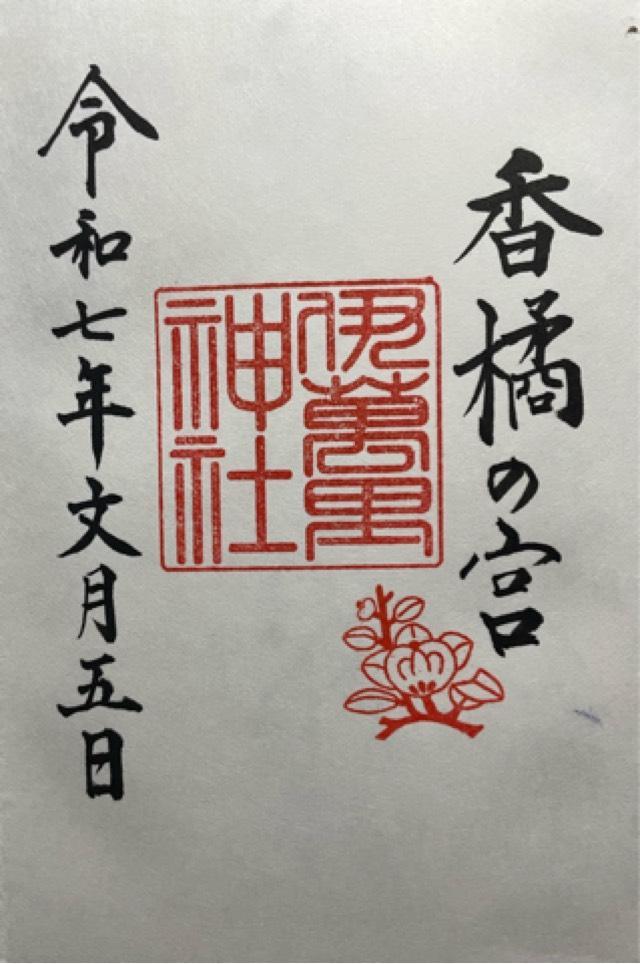 香橘の宮
伊萬里
神社
令和七年文月五日